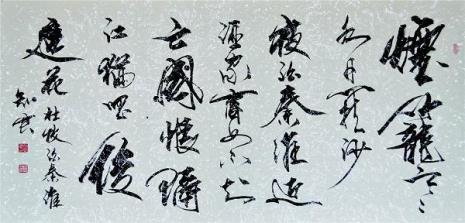 煙籠寒
水月籠沙
夜泊秦淮近
酒家商女不知
亡國恨隔
江猶唱後
庭花 杜牧泊秦淮